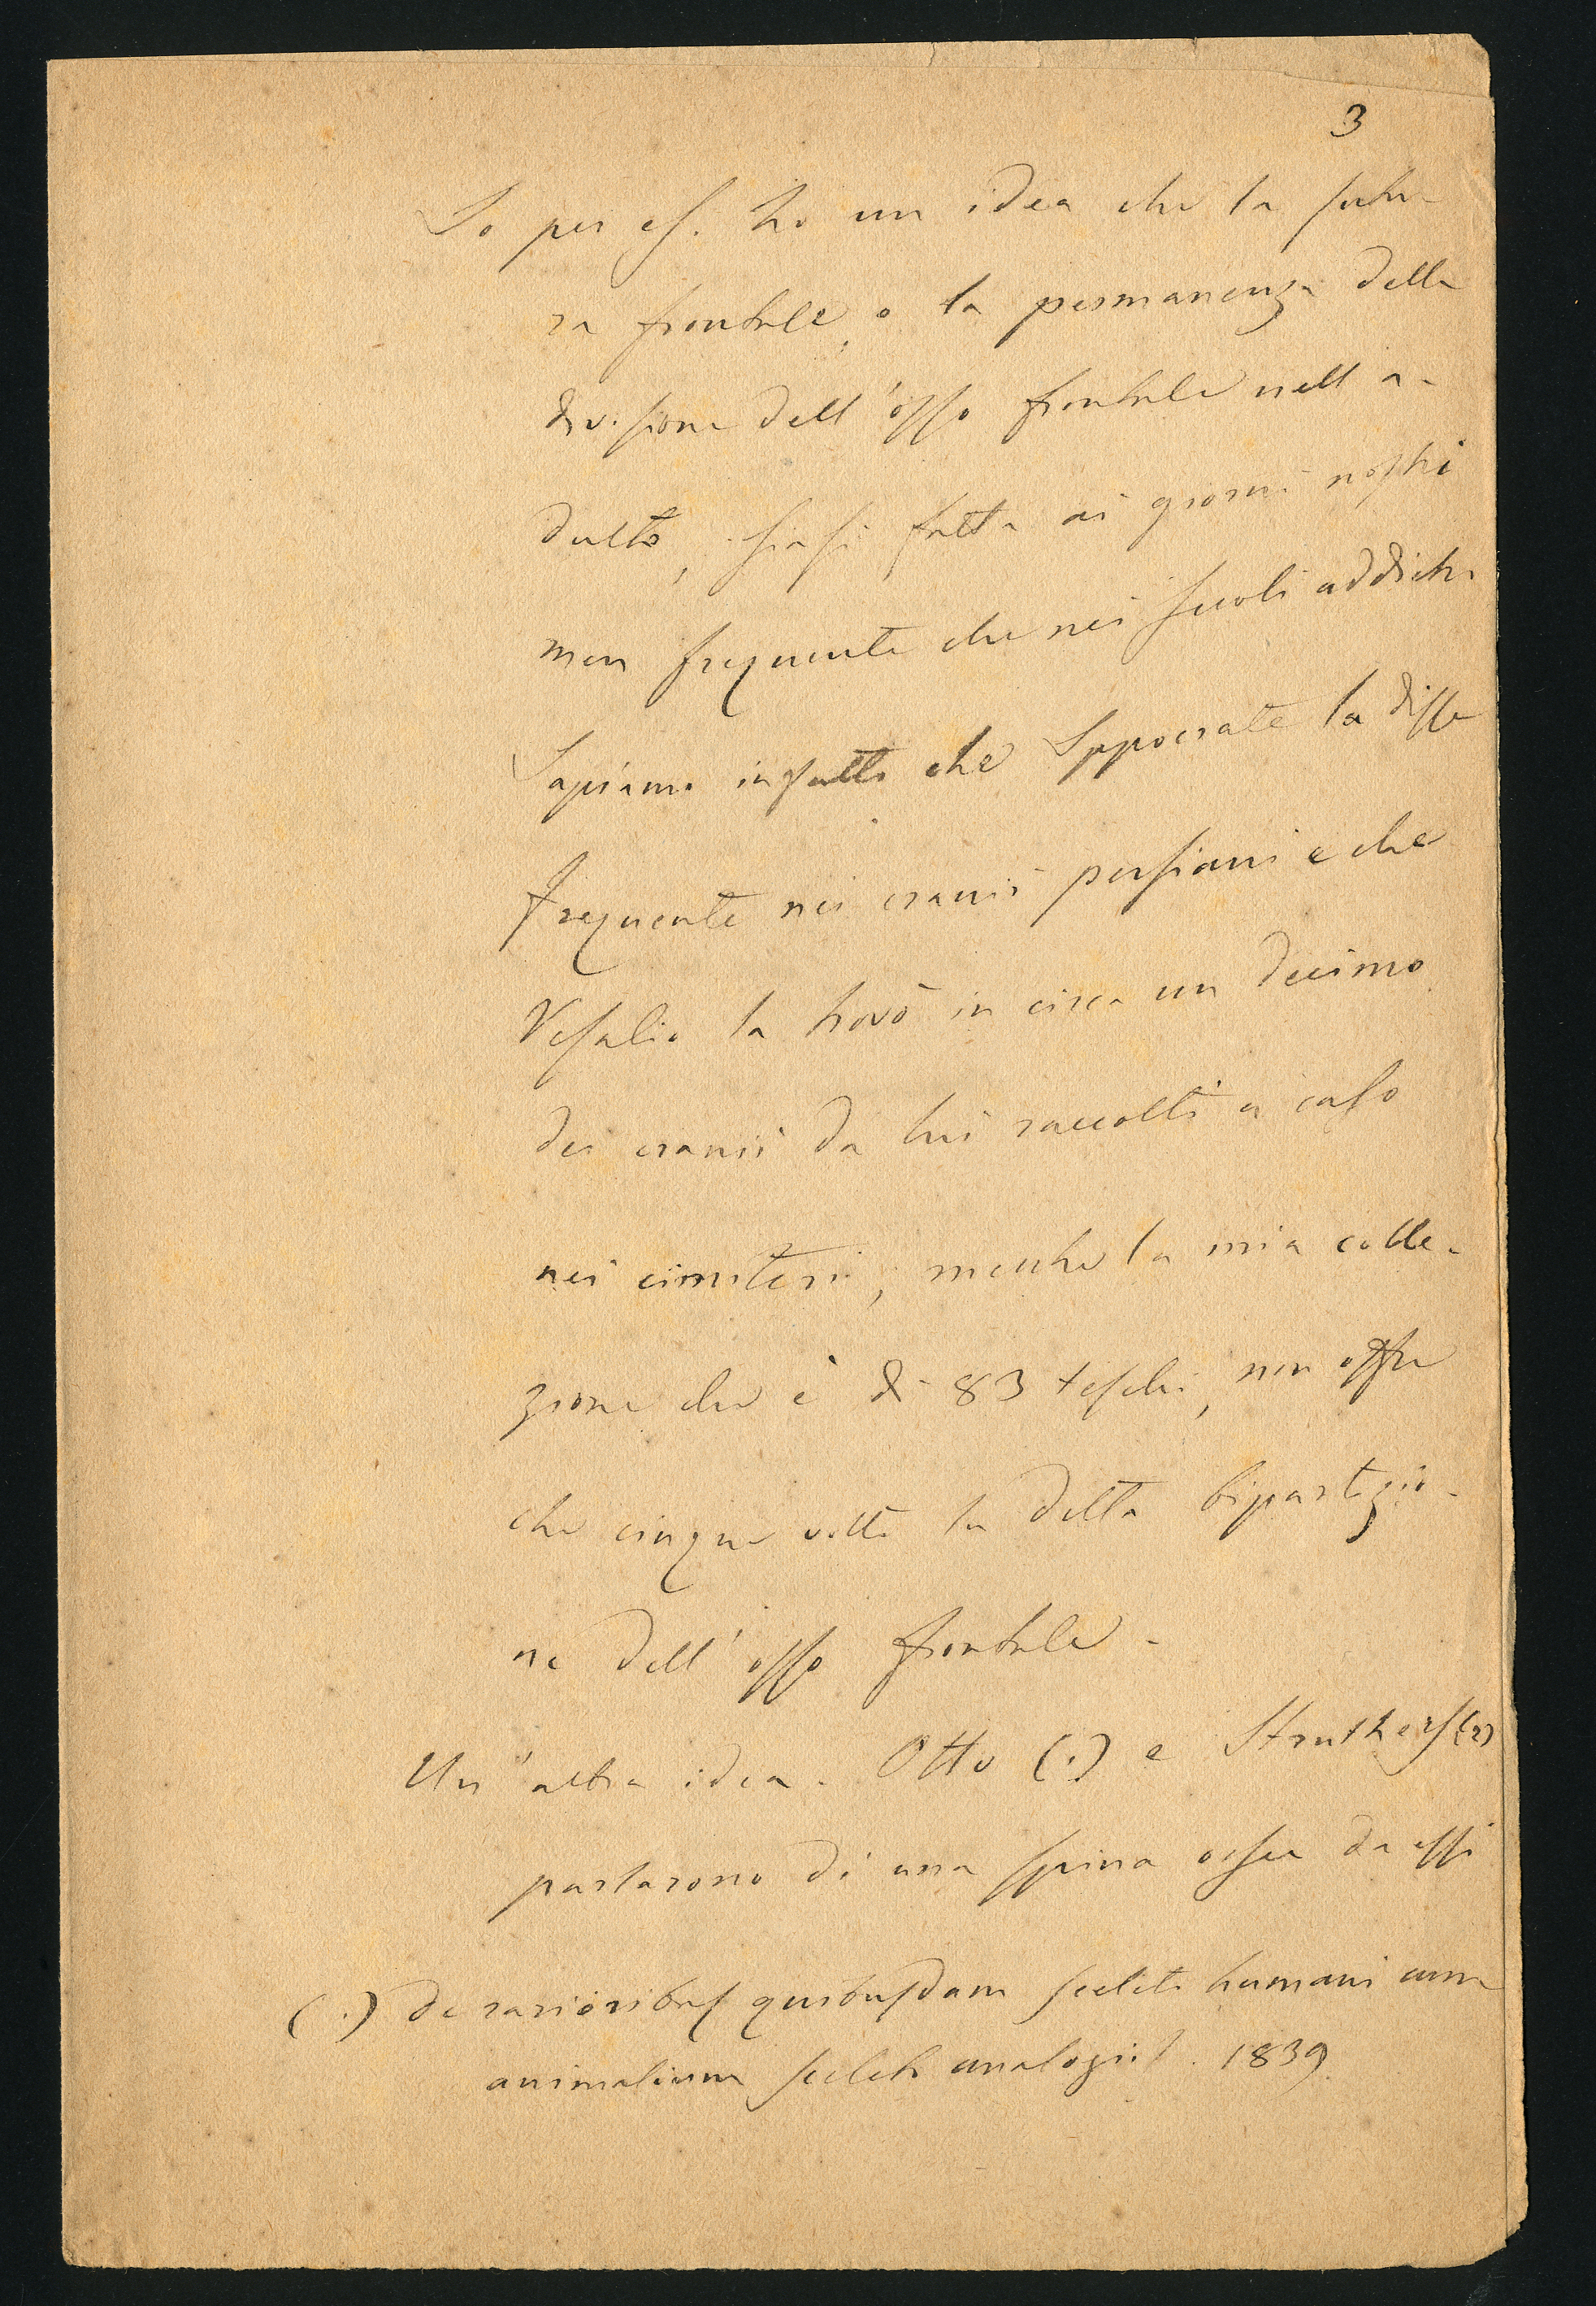 3
Io per es. ho un idea che la sutu-
ra frontale, o la permanenza della
divisione dell'osso frontale nell a-
dulto, siasi fatta ai giorni nostri
men frequente che nei secoli addietro
Sappiamo infatti che Ippocrate la disse
frequente nei cranii persiani e che
Vesalio la trovò in circa un decimo
dei cranii da lui raccolti a caso
nei cimiteri, mentre la mia colle-
zione che è di 83 teschi, non offre
che cinque volte la detta bipartizio-
ne dell'osso frontale.
Un'altra idea. Otto (1) e Struthers (2)
parlarono di una spina ossea da essi
(1) De rarioribus quibusdam sceleti humani cum
animalium sceleto analogiis. 1839